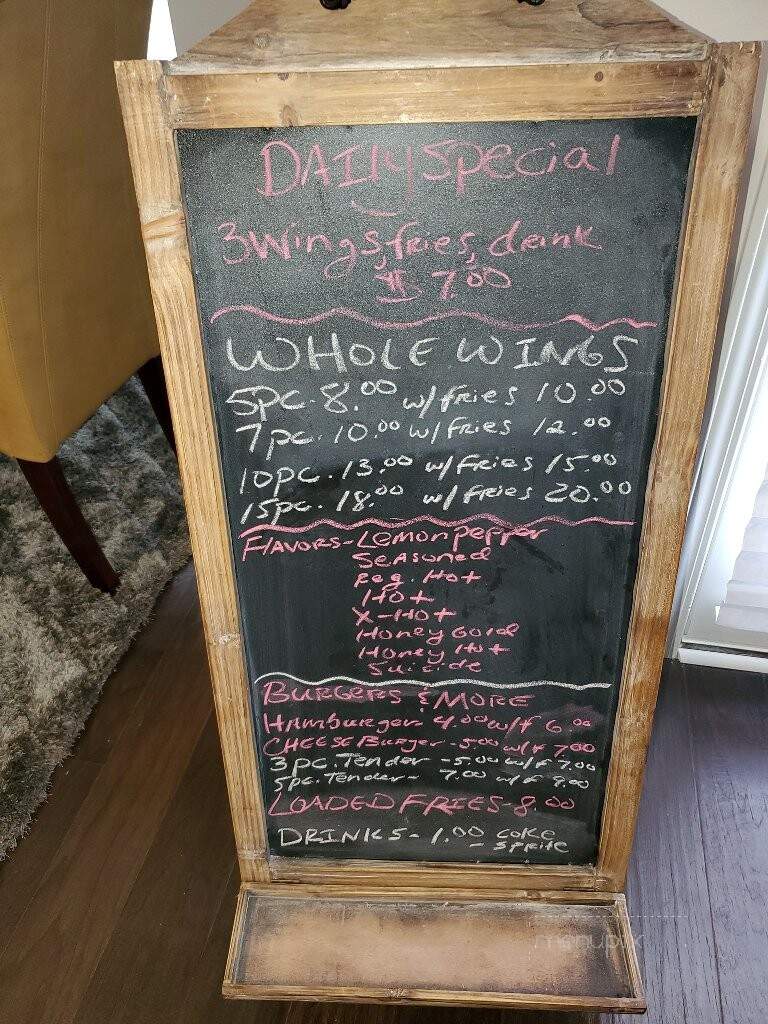 DAILY Special
3 Wings, fries, drink
$7.00
WHOLE WINGS
5pc. 8.00 w/fries 10.00
7pc. 10.00 w/fries 12.00
10pc. 13.00 w/fries 15.00
15pc. 18.00 w/fries 20.00
FLAVORS - Lemon pepper
Seasoned
Reg. Hot
Hot
X-Hot
Honey Gold
Honey Hot
Suicide
BURGERS & MORE
Hamburger 4.00 w/f 6.00
CHEESE Burger - 5.00 w/f 7.00
3pc. Tender - 5.00 w/f 7.00
5pc. Tender - 7.00 w/f 9.00
LOADED FRIES - 8.00
DRINKS - 1.00 coke
- sprite
menupix